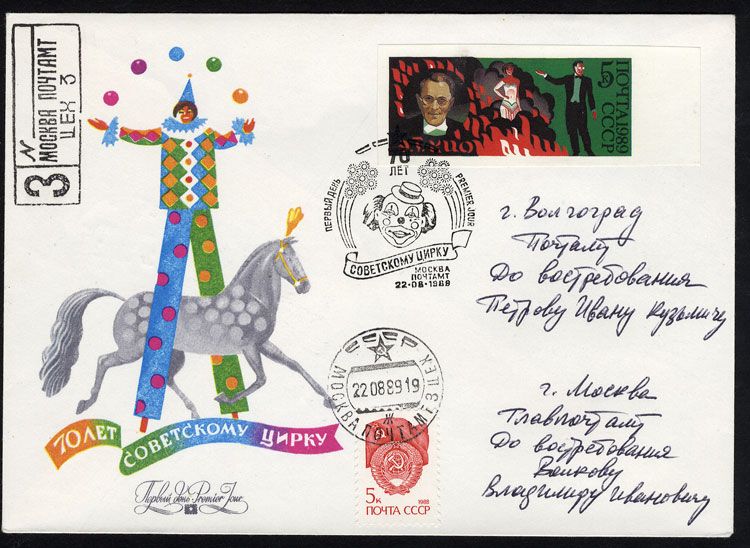 МОСКВА ПОЧТАМТ
ЦЕХ 3
З
N
ПОЧТА 1989
СССР
ЭМИЛЬ КИО
70
ЛЕТ
ПЕРВЫЙ ДЕНЬ
PREMIER JOUR
СОВЕТСКОМУ ЦИРКУ
МОСКВА
ПОЧТАМТ
22-08-1989
г. Волгоград
Почтамт
До востребования
Петрову Ивану Кузьмичу
СССР
22 08 89 19
МОСКВА ПОЧТАМТ
г. Москва
Главпочтамт
До востребования
Волкову
Владимиру Ивановичу
70 ЛЕТ СОВЕТСКОМУ ЦИРКУ
Первый день · Premier Jour
5к
1988
ПОЧТА СССР